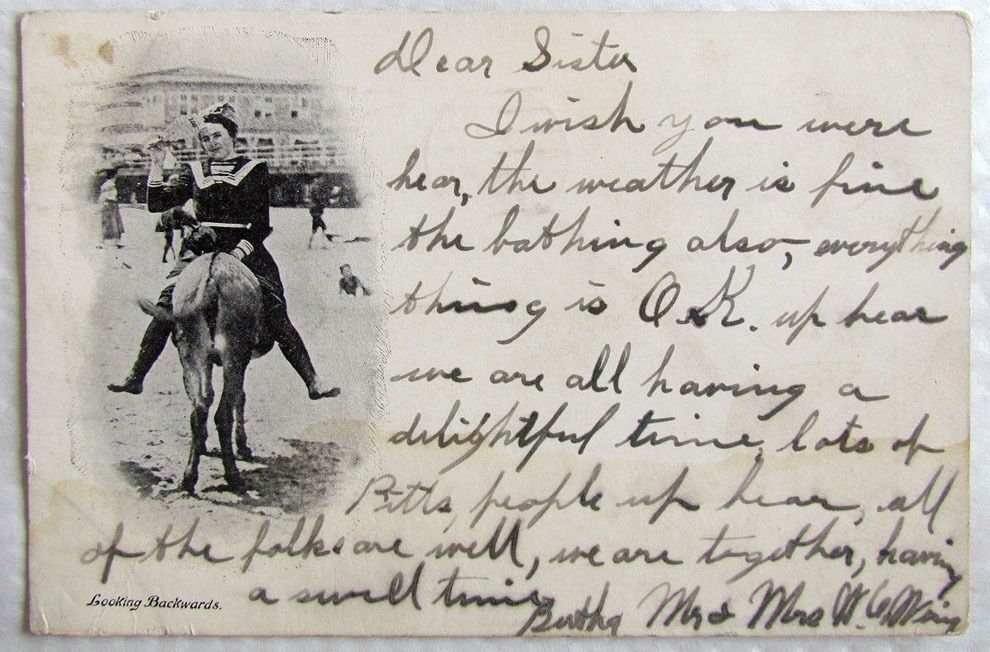 Dear Sister
I wish you were
hear, the weather is fine
the bathing also, everything
thing is O.K. up hear
we are all having a
delightful time, lots of
Pitts, people up hear, all
of the folks are well, we are together, having
a swell time
Bertha Mr & Mrs W.
Looking Backwards.